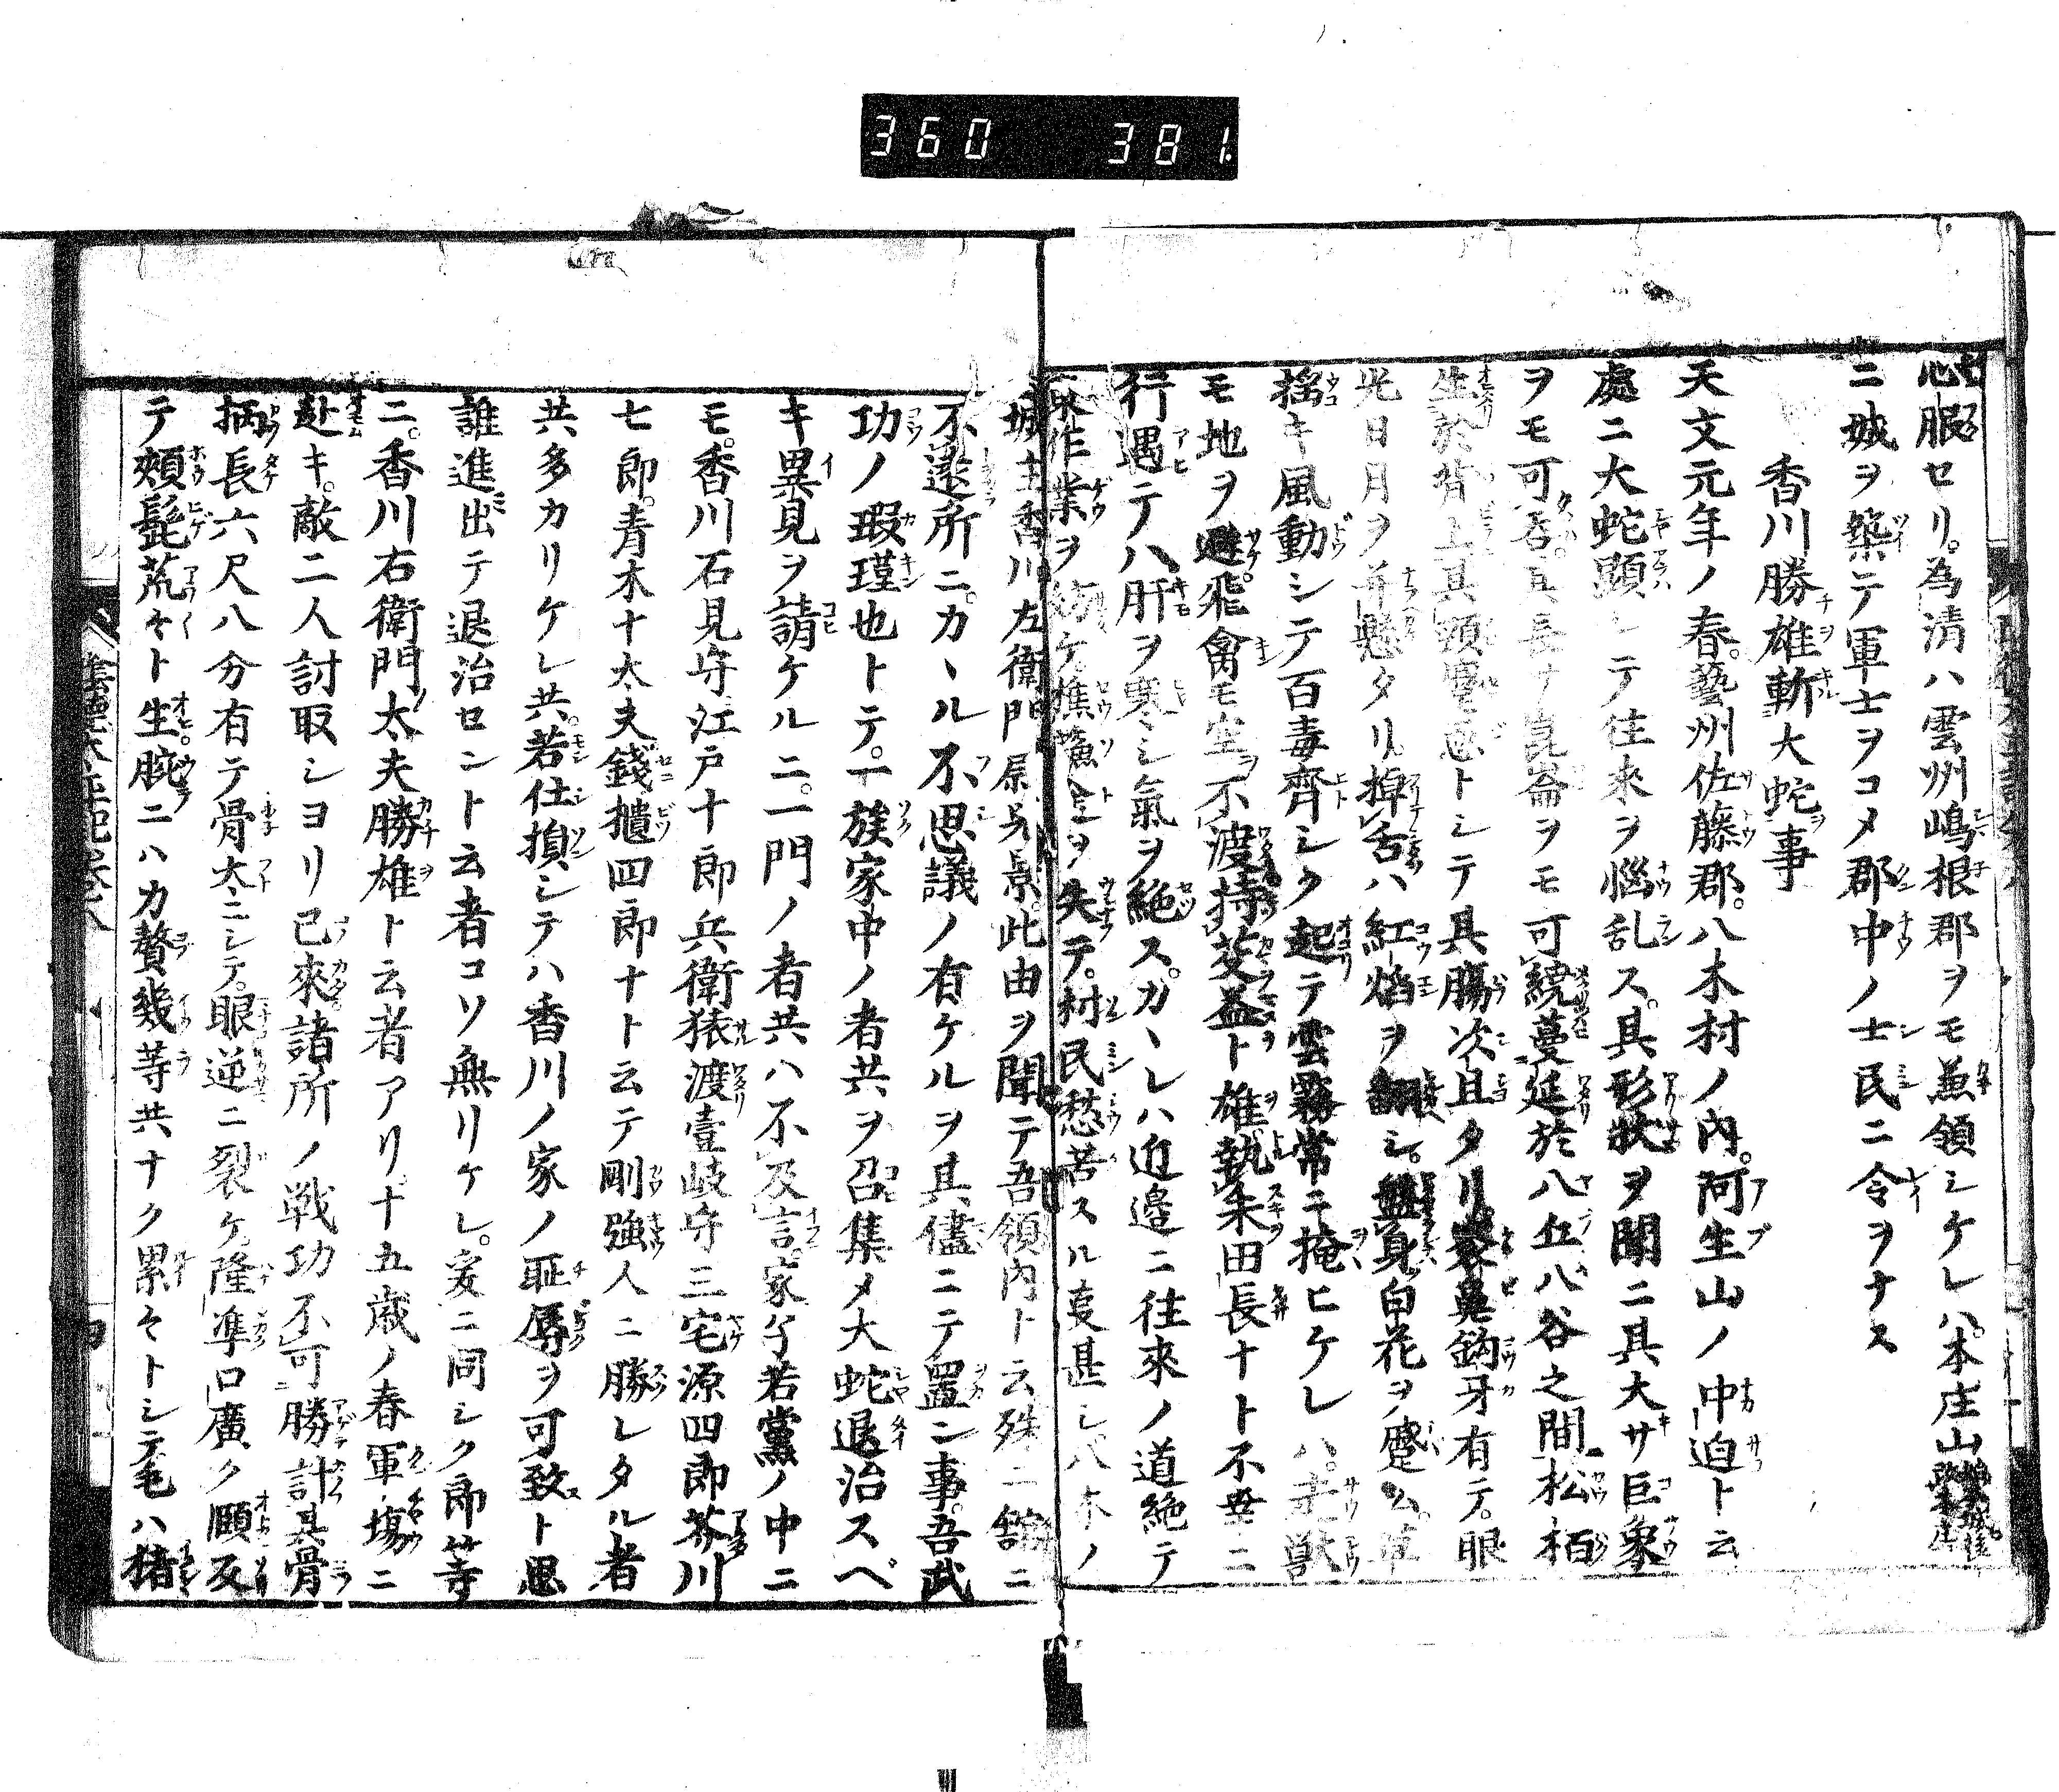 360 381
心服セリ。為清ハ雲州嶋根郡ヲモ兼領シケレハ。本庄山
ニ城ヲ築テ軍士ヲコメ郡中ノ士民ニ令ヲナス
香川勝雄斬大蛇事
天文元年ノ春。藝州佐藤郡。八木村ノ内。阿生山ノ中迫ト云
處ニ大蛇顕レテ往来ヲ惱乱ス。其形状ヲ聞ニ其大サ巨象
ヲモ可呑。其長サ崑崙ヲモ可繞蔓延於八丘八谷之間松栢
生於背上其頭トシテ其膓次且タリ鼻鈎牙有テ。眼
光日月ヲ并懸タリ掉舌ハ紅焰ヲ翻シ。身白花ヲ蹙ム。草
揺キ風動シテ百毒齊シク起テ雲霧常ニ掩ヒケレハ。走獣
モ地ヲ避。飛禽モ空ヲ不渡持芟益ト雄執朱田長ナト不幸ニ
行遇テハ肝ヲ寒シ氣ヲ絶ス。カヽレハ近邊ニ往來ノ道絶テ
作業ヲ妨ケ樵ヲ失テ。村民愁苦スル叓甚シ八木ノ
城主香川左衛門尉光景。此由ヲ聞テ吾領内ト云殊ニ舘ニ
不遠所ニ。カヽル不思議ノ有ケルヲ其儘ニテ置ン事。吾武
功ノ瑕瑾也トテ。一族家中ノ者共ヲ召集メ大蛇退治スベ
キ異見ヲ請ケルニ。一門ノ者共ハ不及言家ノ子若黨ノ中ニ
モ。香川石見守江戸十郎兵衛猿渡壹岐守三宅源四郎芥川
七郎。青木十太夫錢櫃四郎ナト云テ剛強人ニ勝レタル者
共多カリケレ共。若仕損シテハ香川ノ家ノ耻辱ヲ可致ト思
誰進出テ退治セント云者コソ無リケレ。爰ニ同シク郎等
ニ。香川右衛門太夫勝雄ト云者アリ。十五歳ノ春軍塲ニ
赴キ。敵二人討取シヨリ已來諸所ノ戦功不可勝計其骨
柄長六尺八分有テ骨太ニシテ。眼逆ニ裂ケ隆準口廣ク頤反
テ頰髭荒々ト生。腕ニハ力贅幾等共ナク累々トシテ毛ハ猪